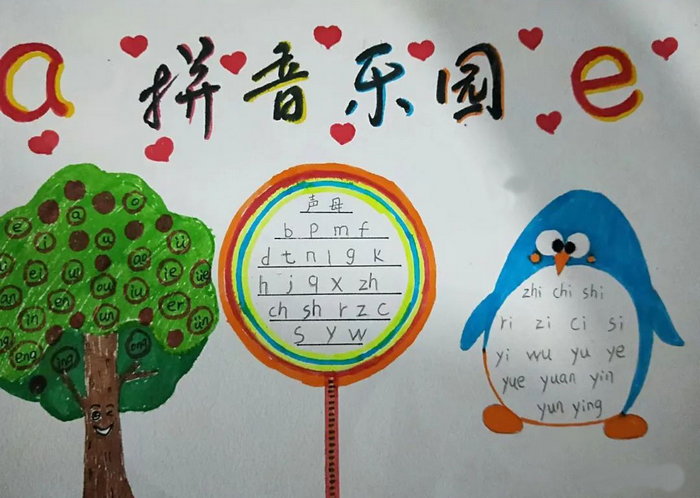 a 拼音乐园 e
a o
e i u ü
ei ui ie üe
ou iu
an un er
in ün
eng ing ong
声母
b p m f
d t n l g k
h j q x zh
ch sh r z c
s y w
zhi chi shi
ri zi ci si
yi wu yu ye
yue yuan yin
yun ying